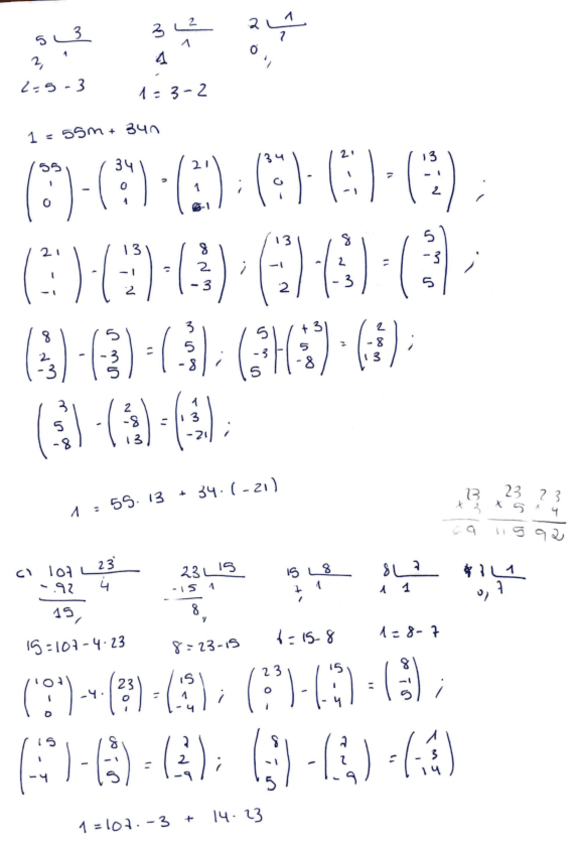 5 3 3 2 2 1
2, 1 1 1 0, 2
2 = 5 - 3 1 = 3 - 2
1 = 55m + 34n
(55 1 0) - (34 0 1) = (21 1 -1) ; (34 0 1) - (21 1 -1) = (13 -1 2) ;
(21 1 -1) - (13 -1 2) = (8 2 -3) ; (13 -1 2) - (8 2 -3) = (5 -3 5) ;
(8 2 -3) - (5 -3 5) = (3 5 -8) ; (5 -3 5) - (+3 5 -8) = (2 -8 13) ;
(3 5 -8) - (2 -8 13) = (1 13 -21) ;
1 = 55 · 13 + 34 · (-21)
23 23 23
× 3 × 5 × 4
69 115 92
c) 107 23 23 15 15 8 8 7 7 1
- 92 4 - 15 1 7, 1 1 1 0, 7
15, 8,
15 = 107 - 4 · 23 8 = 23 - 15 7 = 15 - 8 1 = 8 - 7
(107 1 0) - 4 · (23 0 1) = (15 1 -4) ; (23 0 1) - (15 1 -4) = (8 -1 5) ;
(15 1 -4) - (8 -1 5) = (7 2 -9) ; (8 -1 5) - (7 2 -9) = (1 -3 14)
1 = 107 · -3 + 14 · 23